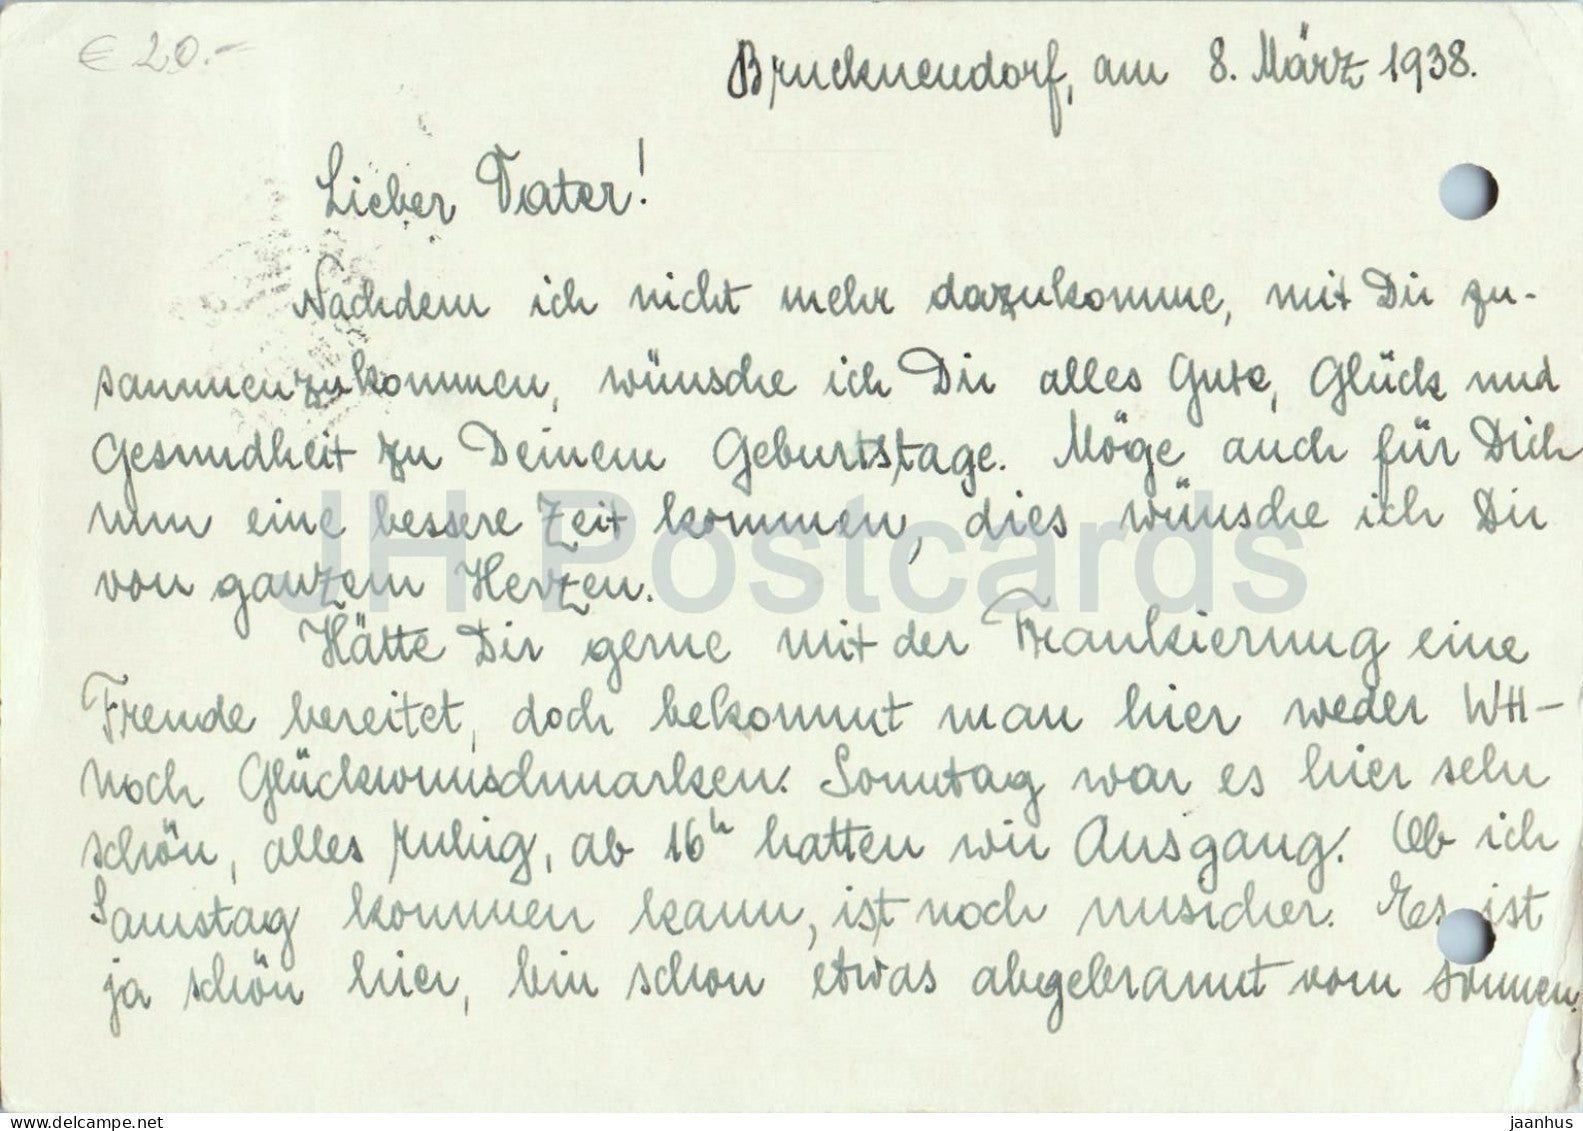 € 20.-
Brucknendorf, am 8. März 1938.
Lieber Vater!
Nachdem ich nicht mehr dazukomme, mit Dir zu-
sammenzukommen, wünsche ich Dir alles Gute, Glück und
Gesundheit zu Deinem Geburtstage. Möge auch für Dich
nun eine bessere Zeit kommen, dies wünsche ich Dir
von ganzem Herzen.
JH Postcards
Hätte Dir gerne mit der Frankierung eine
Freude bereitet, doch bekommt man hier weder WH-
noch Glückwunschmarken. Sonntag war es hier sehr
schön, alles ruhig, ab 16h hatten wir Ausgang. Ob ich
Samstag kommen kann, ist noch unsicher. Es ist
ja schön hier, bin schon etwas abgebrannt vom Sonnen.
www.delcampe.net
jaanhus